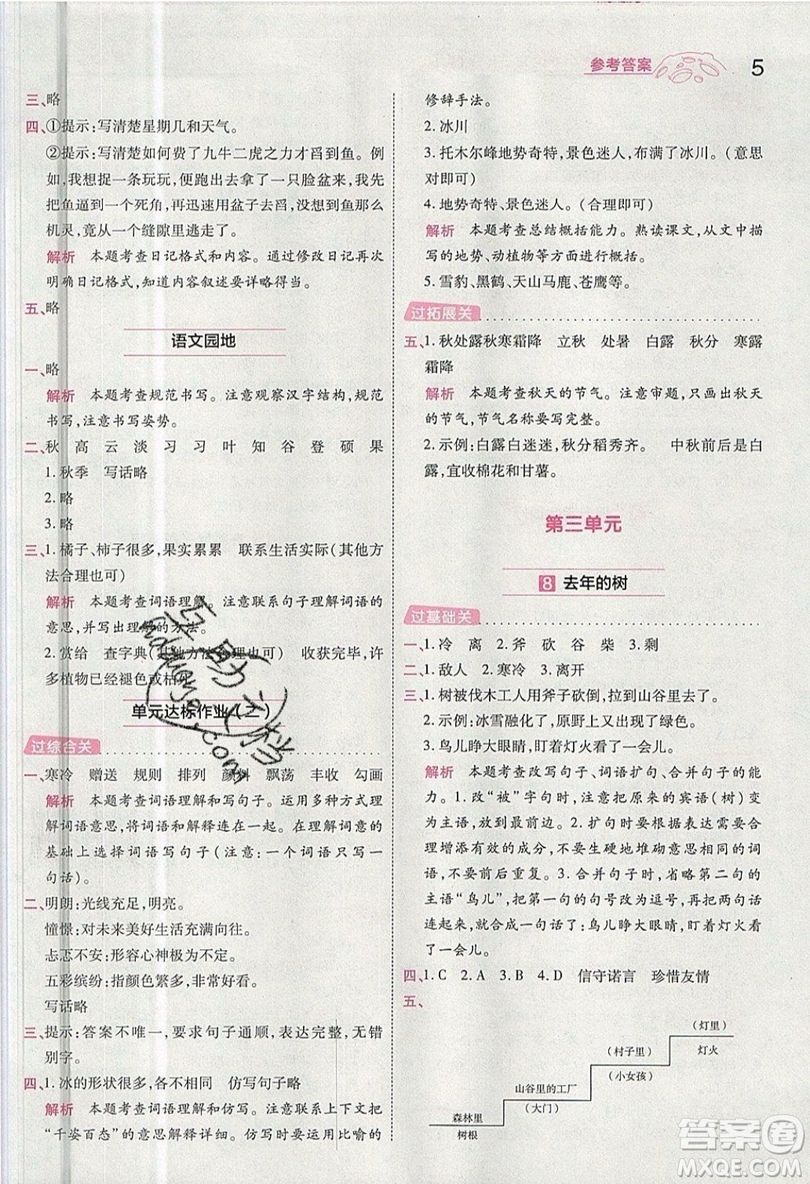 参考答案
5
三、略
四、①提示:写清楚星期几和天气。
②提示:写清楚如何费了九牛二虎之力才舀到鱼。例
如,我想捉一条玩玩,便跑去拿了一只脸盆来,我先
把鱼逼到一个死角,再迅速用盆子去舀,可鱼儿那么
机灵,竟然从一个缝隙里逃走了。
解析 本题考查日记格式和内容。通过修改日记再
次明确日记格式,内容叙述要详略得当。
五、略
语文园地
一、略
解析 本题考查规范书写。注意观察汉字结构,规范
书写,注意书写姿势。
二、秋 高 云 淡 习 习 叶 知 谷 登 硕 果
1.秋季 写话略
2.略
3.略
三、1.橘子、柿子很多,果实累累 联系生活实际(其他方
法合理也可)
解析 本题考查词语理解。注意联系句子理解词语的
意思,并写出理解的方法。
2.赏给 查字典(其他方法合理也可) 收获完毕,许
多植物已经褪色或枯
单元达标作业(二)
过综合关
一、寒冷 赠送 规则 排列 颜料 飘荡 丰收 勾画
解析 本题考查词语理解和写句子。运用多种方式理
解词语意思,将词语和解释连在一起。在理解词意的
基础上选择词语写句子(注意:一个词语只写一
句话)。
二、明朗:光线充足,明亮。
憧憬:对未来美好生活充满向往。
忐忑不安:形容心神极为不安。
五彩缤纷:指颜色繁多,色彩绚丽,十分好看。
写话略
三、提示:答案不唯一,要求句子通顺,表达完整,无错
别字。
四、1.冰的形状很多,各不相同 仿写句子略
解析 本题考查词语理解和仿写。注意联系上下文把
“千姿百态”的意思解释详细。仿写时要运用比喻的
修辞手法。
2.冰川
3.托木尔峰地势奇特,景色迷人,布满了冰川。(意思
对即可)
4.地势奇特、景色迷人。(合理即可)
解析 本题考查总结概括能力。熟读课文,从文中描
写的地势、动植物等方面进行概括。
5.雪豹、黑鹤、天山马鹿、苍鹰等。
过拓展关
五、1.秋处露秋寒霜降 立秋 处暑 白露 秋分 寒露
霜降
解析 本题考查秋天的节气。注意审题,只写出秋天
的节气,节气名称书写要规范。
2.示例:白露白迷迷,秋分稻秀齐。 中秋前后是白
露,宜收棉花和甘薯。
第三单元
8 去年的树
过基础关
一、1.冷 离 2.斧 砍 谷 柴 3.剩
二、1.敌人 2.寒冷 3.离开
三、1.树被伐木工人用斧子砍倒,拉到山谷里去了。
2.示例:冰雪融化了,原野上又变成了绿色。
3.鸟儿睁大眼睛,盯着灯火看了一会儿。
解析 本题考查改写句子、词语扩句、合并句子的能
力。1.改“被”字句时,注意把原来的宾语(树)变
为主语,原来的主语变为宾语。2.扩句时根据表达需要合
理增添有效的成分,不要生硬地堆砌词语,要使增添
的词语更好地为主语服务。3.合并句子时,省略第二句的
主语“鸟儿”,把第一句的句号改为逗号,把两句话合
理地连成一句话:鸟儿睁大眼睛,盯着灯火看了
一会儿。
四、1.C 2.A 3.B 4.D 信守诺言 珍惜友情
五、
(灯里)
(村子里) 灯火
山谷里的工厂 (小女孩)
森林里 (大门)
树根
答案圈
MXQE.COM